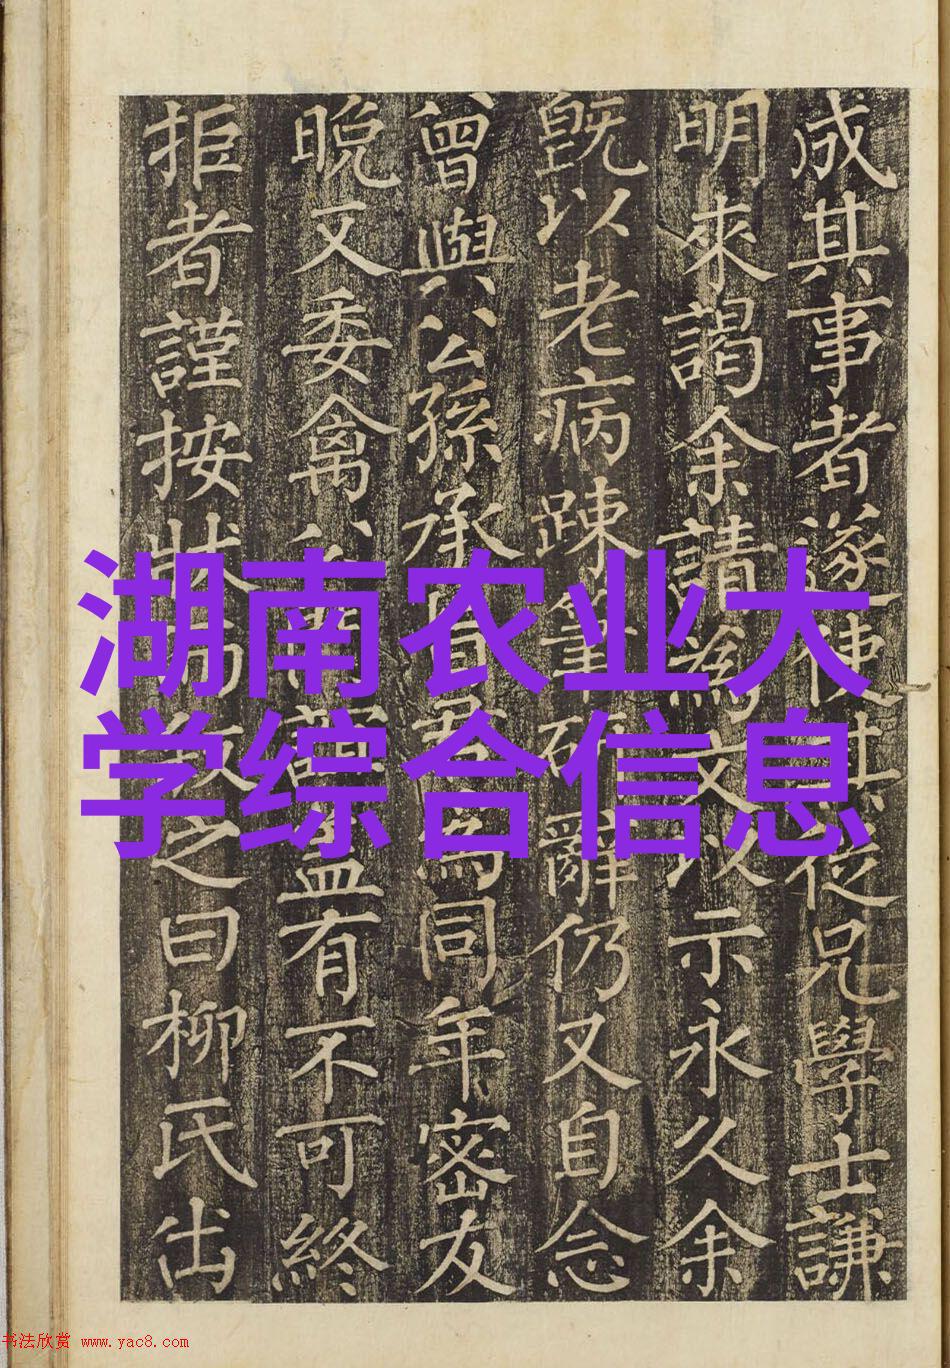 成其事者遂使從兄學士謙
明來謁余請為文以示永久余
既以老病踈筆硯辭仍又自念
曾與公孫承君為同年密友
晚又委禽有不可終
拒者謹按狀而敘之曰柳氏出
湖南农业大
学综合信息
书法欣赏 www.yac8.com